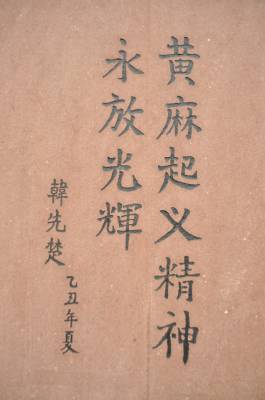 黄麻起义精神
永放光輝
韓先楚
乙丑年夏